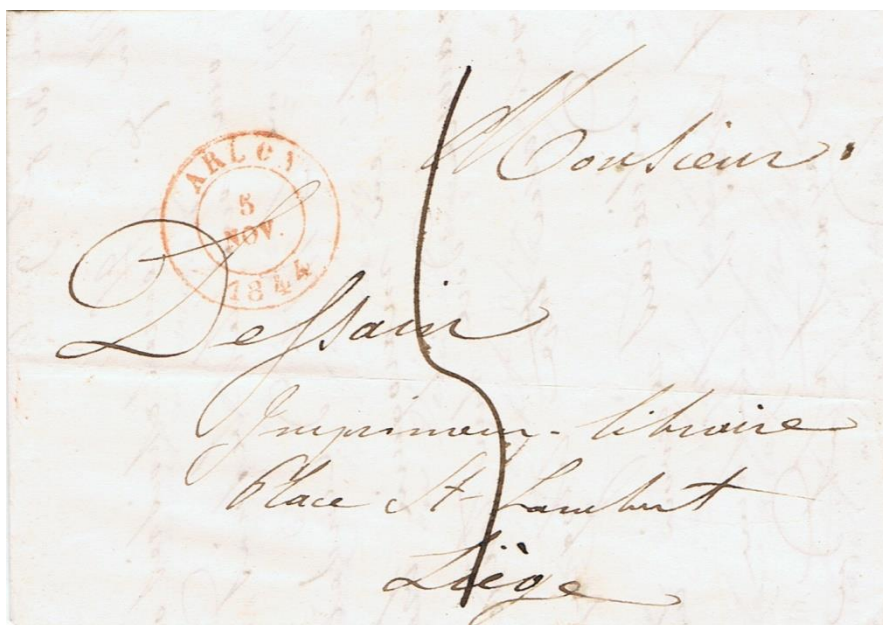 ARLON
5
NOV.
1844
Monsieur
Dessain
Imprimeur-libraire
Place St Lambert
Liège
5